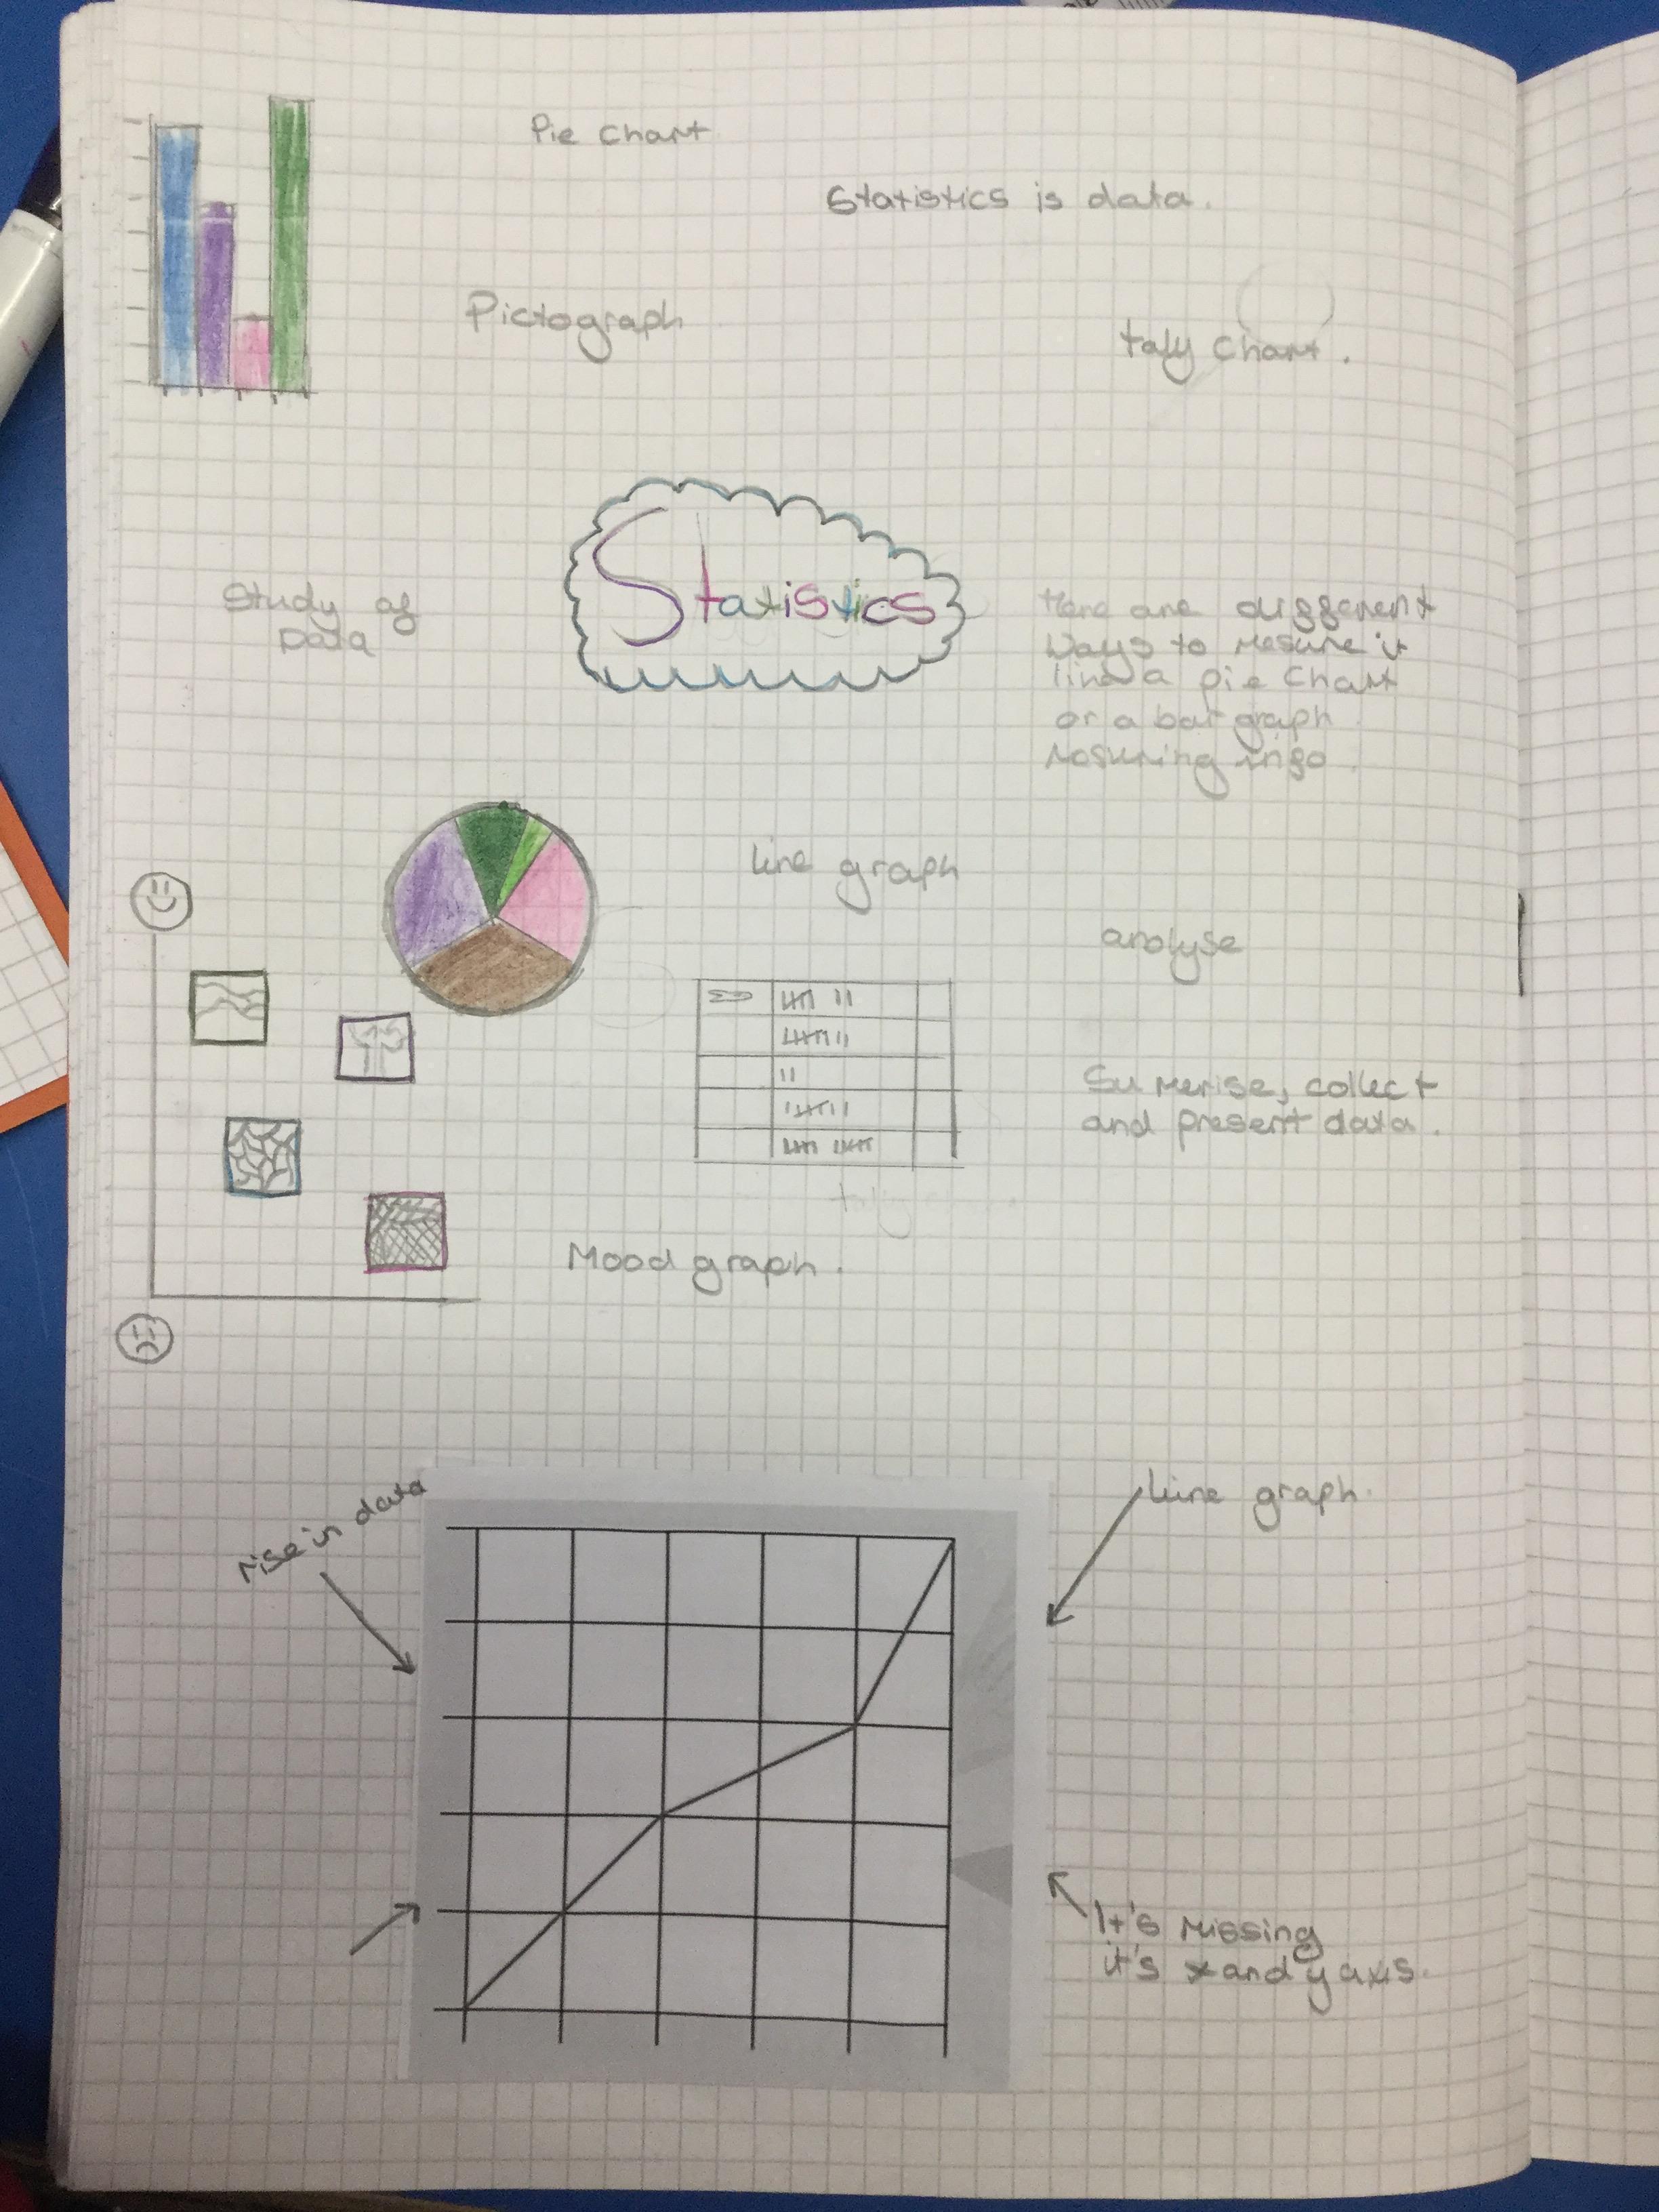 Pie Chart
Statistics is data.
Pictograph
taly Chart.
Statistics
Study of
Data
different
ways to mesure it
a pie Chart
or a bar graph
info.
line graph
analyse
Sumerise, collect
and present data.
Mood graph.
rise in data
Line graph.
It's missing
it's x and y axis.